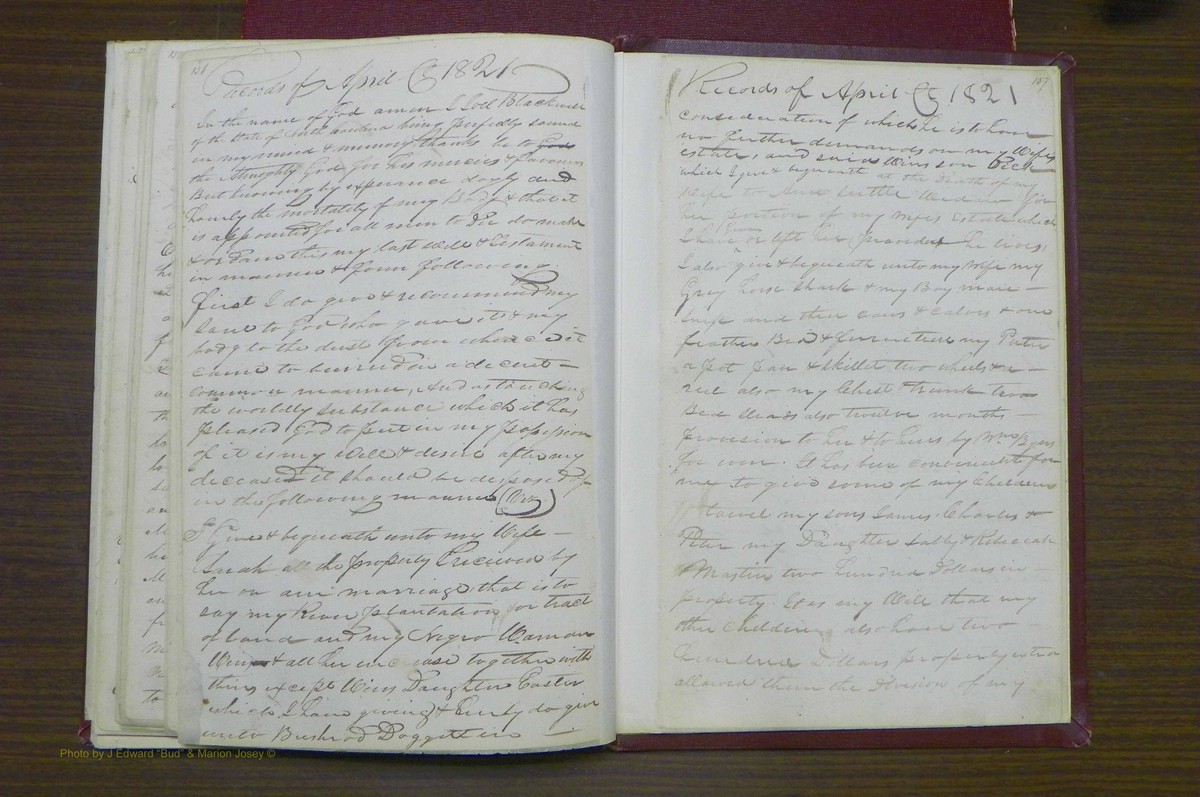 156
Records of April Ct 1821
In the name of God amen I Joel Blackwell
of the State of North Carolina being perfectly sound
in my mind & memory thanks be to God
the Almighty God for his mercies & favours
But knowing by experiance dayly and
hourly the mortality of my Body & that it
is appointed for all men to Die do make
& ordain this my last will & testament
in manner & form following
first I do give & recommend my
Soul to God who gave it & my
body to the dust from whence it
came to be buried in a decent
common manner, And as touching
the worldly substance which it has
pleased God to put in my possession
of it is my will & desire after my
deceased it should be disposed of
in the following manner (Viz)
I Give & bequeath unto my Wife
Sarah all the property I received by
her on our marriage, that is to
say my River plantation or tract
of land and my Negro Woman
Winy & all her increase together with
this except Wins Daughter Easter
which I have giving & Envly do give
unto Bushrod Doggett in
157
Records of April Ct 1821
consideration of which he is to have
no further demands on my Wifes
estate, and said Wins son Peck
which I give & bequeath at the Death of my
Wife to
her portion of my wifes Estate which
Given
I have or left her provided he lives,
I also give & bequeath unto my Wife my
Grey horse Shark & my Bay mare
and three cows & calves & one
feather Bed & furniture my Puter
a pot pan & skillet two wheels & a
reel also my Chest & trunk two
Bed steads also twelve months
provision to her & to hers by
for ever. It has been convenient for
me to give some of my Children
to wit my sons James, Charles &
Peter my Daughter Sally & Rebeccah
Martin two hundred Dollars in
property. It is my Will that my
other Children also have two
hundred Dollars property extra
allowed them the Division of my
Photo by J Edward "Bud" & Marion Josey ©